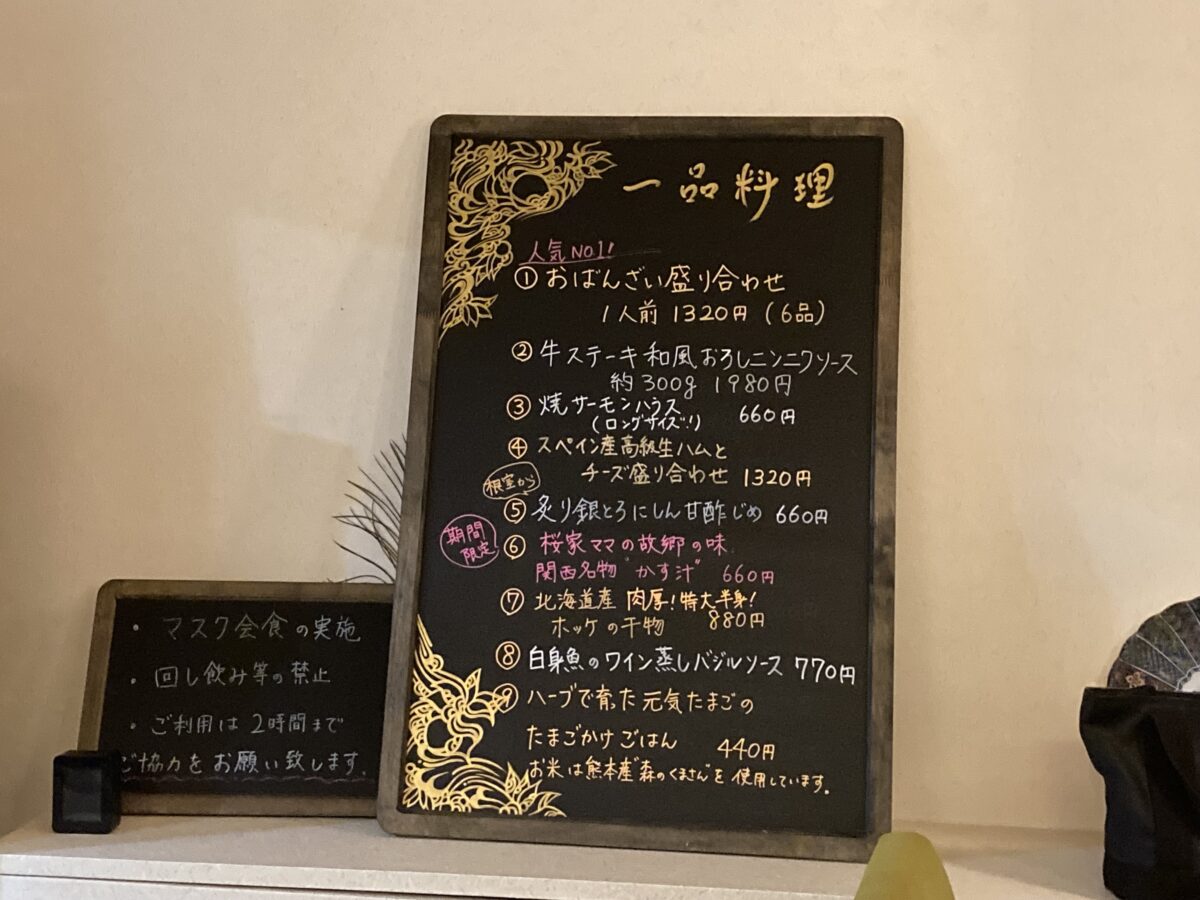 一品料理
人気NO.1!
①おばんざい盛り合わせ
1人前 1320円 (6品)
②牛ステーキ和風おろしニンニクソース
約300g 1980円
③焼サーモンハラス 660円
(ロングサイズ!)
④スペイン産高級生ハムと
チーズ盛り合わせ 1320円
根室から
⑤炙り銀とろにしん甘酢じめ 660円
期間
限定
⑥桜家ママの故郷の味
関西名物"かす汁" 660円
⑦北海道産 肉厚!特大半身!
ホッケの干物 880円
⑧白身魚のワイン蒸しバジルソース 770円
⑨ハーブで育った元気たまごの
たまごかけごはん 440円
お米は熊本産"森のくまさん"を使用しています。
・マスク会食の実施
・回し飲み等の禁止
・ご利用は2時間まで
ご協力をお願い致します。